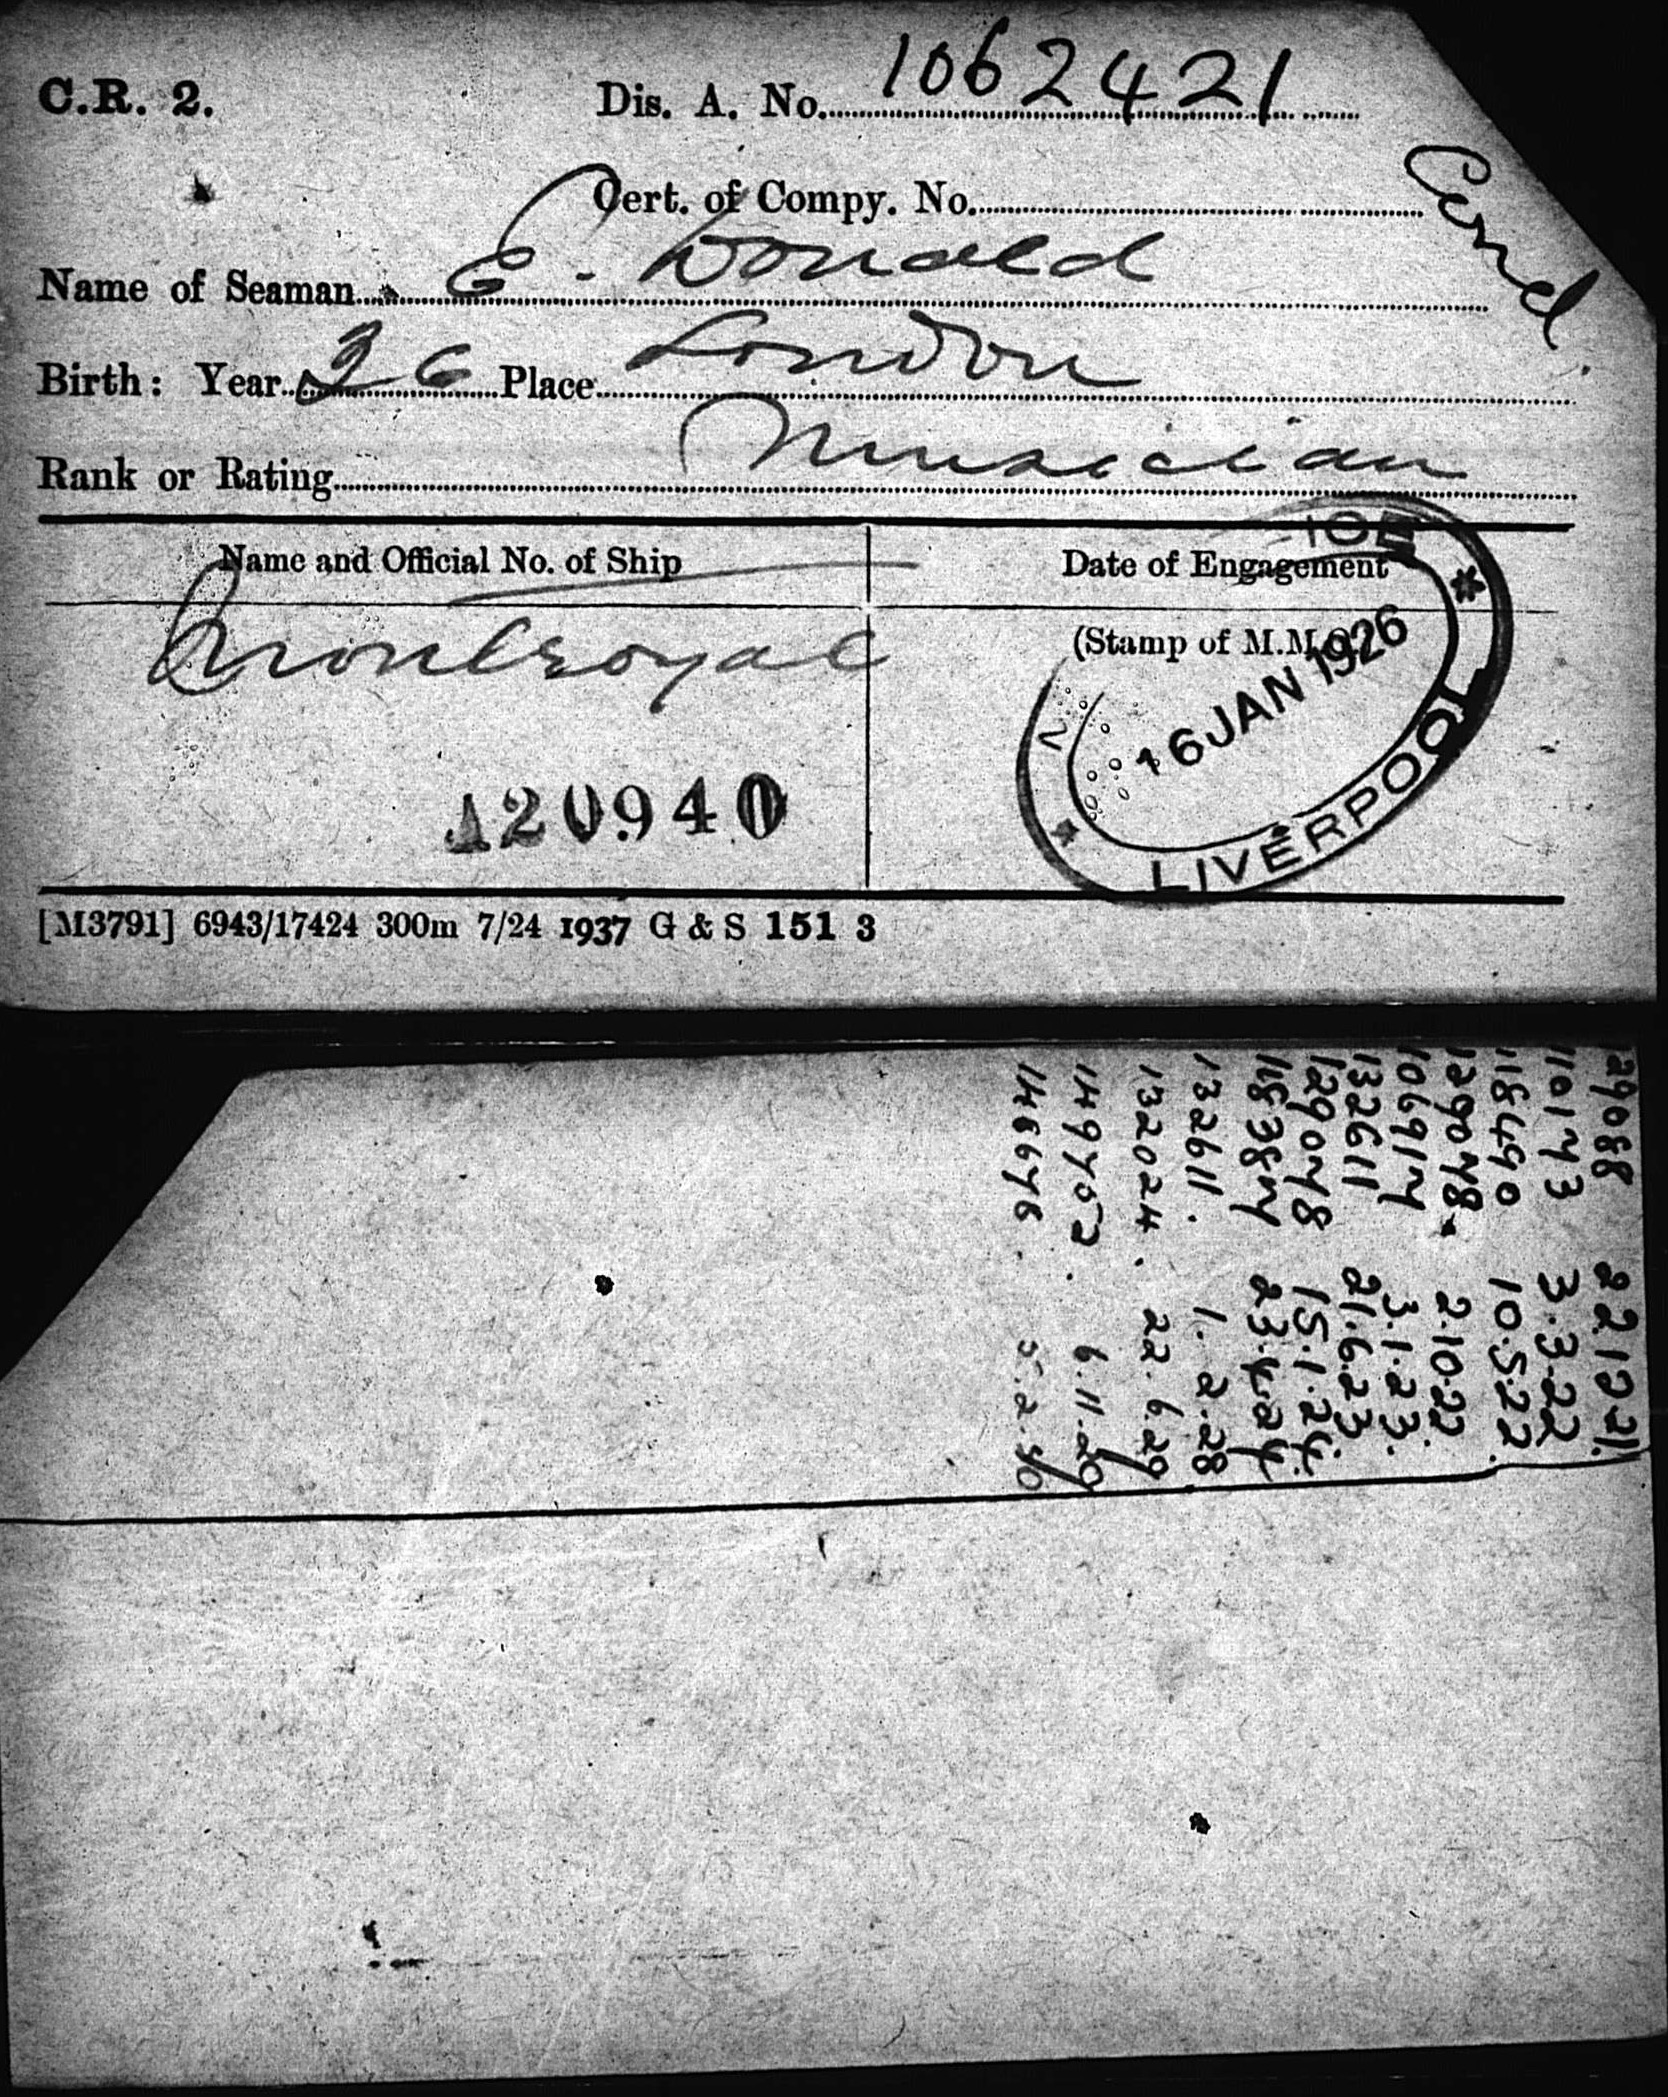 C.R. 2.
Dis. A. No. 1062421
Cert. of Compy. No.
Name of Seaman E. Donald
Birth: Year 26 Place London
Rank or Rating Musician
Name and Official No. of Ship
Date of Engagement
Montroyal
(Stamp of M.M.O.)
16 JAN 1926
LIVERPOOL
120940
[M3791] 6943/17424 300m 7/24 1937 G & S 151 3
29088 22.12.21.
110173 3.3.22
118490 10.5.22
129078 2.10.22.
106917 3.1.23.
132611 21.6.23.
129078 15.1.24.
118387 23.4.24
132611. 1.2.28
132024. 22.6.29
149752. 6.11.29
146678. 5.2.30